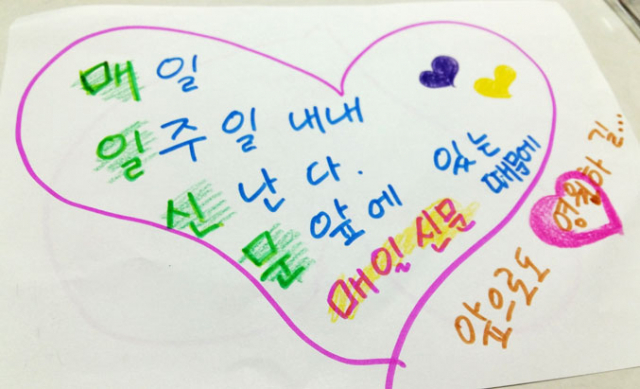 매일
일주일 내내
신난다.
문 앞에 있는
매일신문 때문에
앞으로도
영원하길...